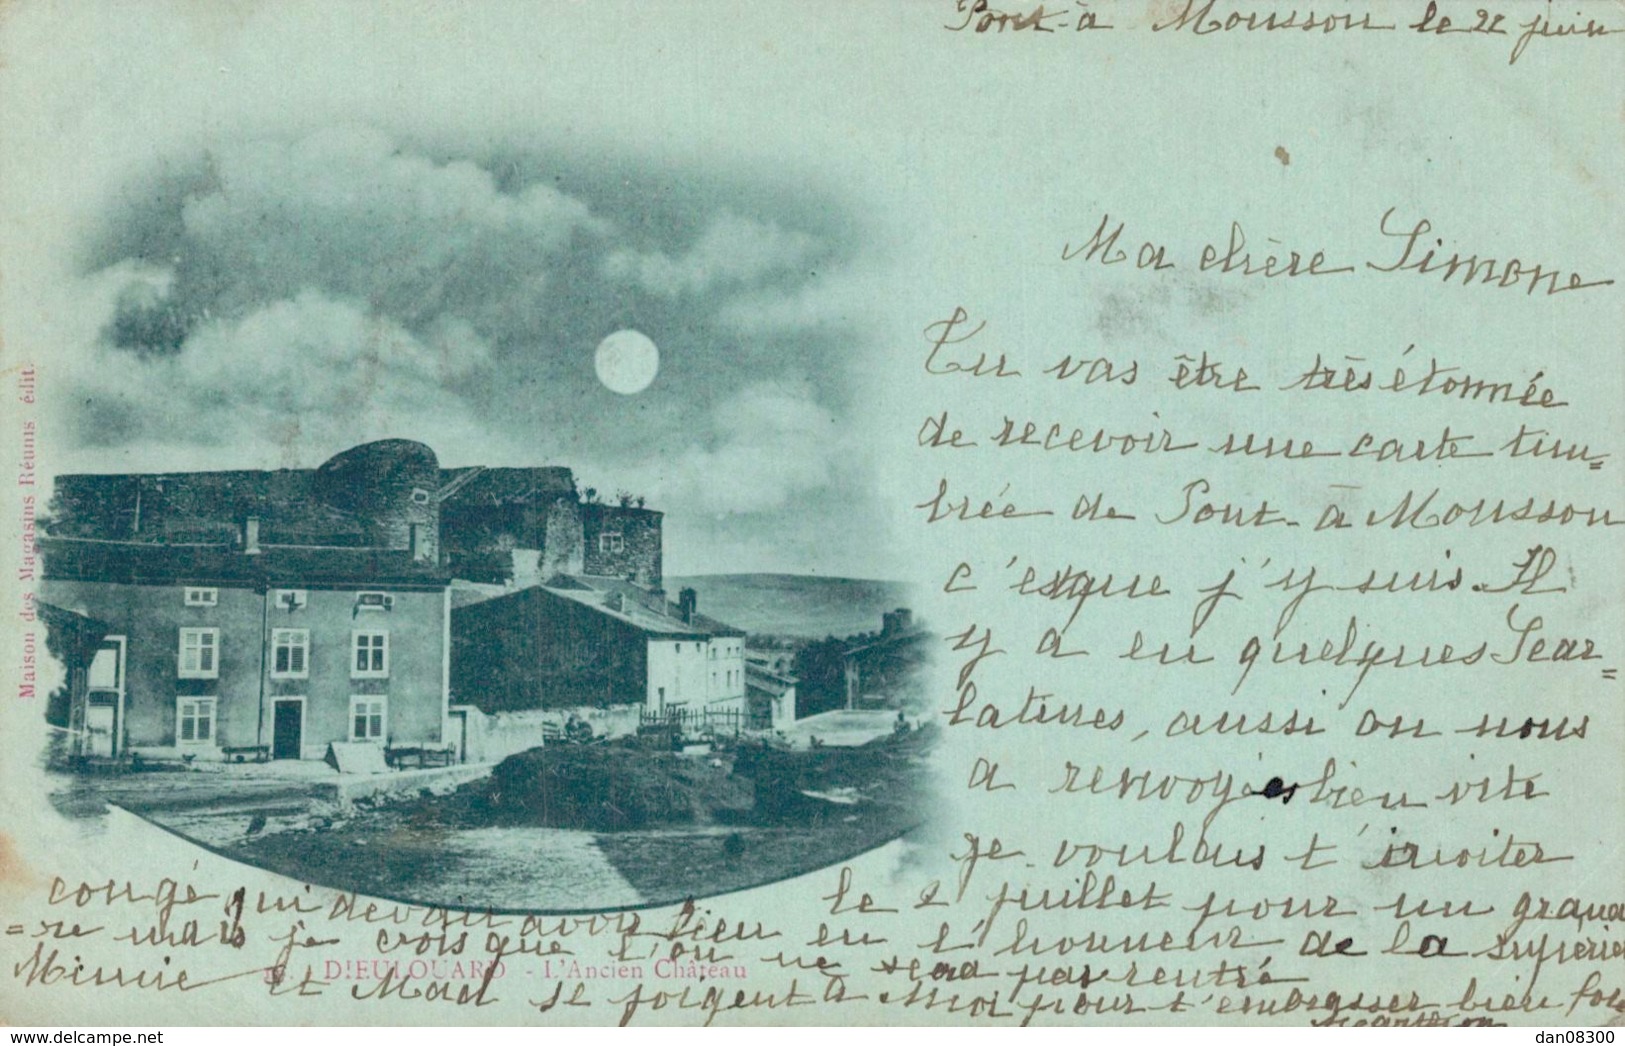 Pont-à Mousson le 22 juin
Ma chère Simone
Tu vas être très étonnée
de recevoir une carte tim=
brée de Pont-à Mousson
c'esque j'y suis. Il
y a eu quelques Scar=
latines, aussi on nous
a renvoyées bien vite
je voulais t'inviter
le 2 juillet pour un grand
congé qui devait avoir lieu en l'honneur de la supérieu
=re mais je crois que l'on ne sera pas rentré
Mimie et Mad se joignent à moi pour t'embrasser bien fort
Maison des Magasins Réunis édit.
DIEULOUARD - L'Ancien Château
www.delcampe.net
dan08300